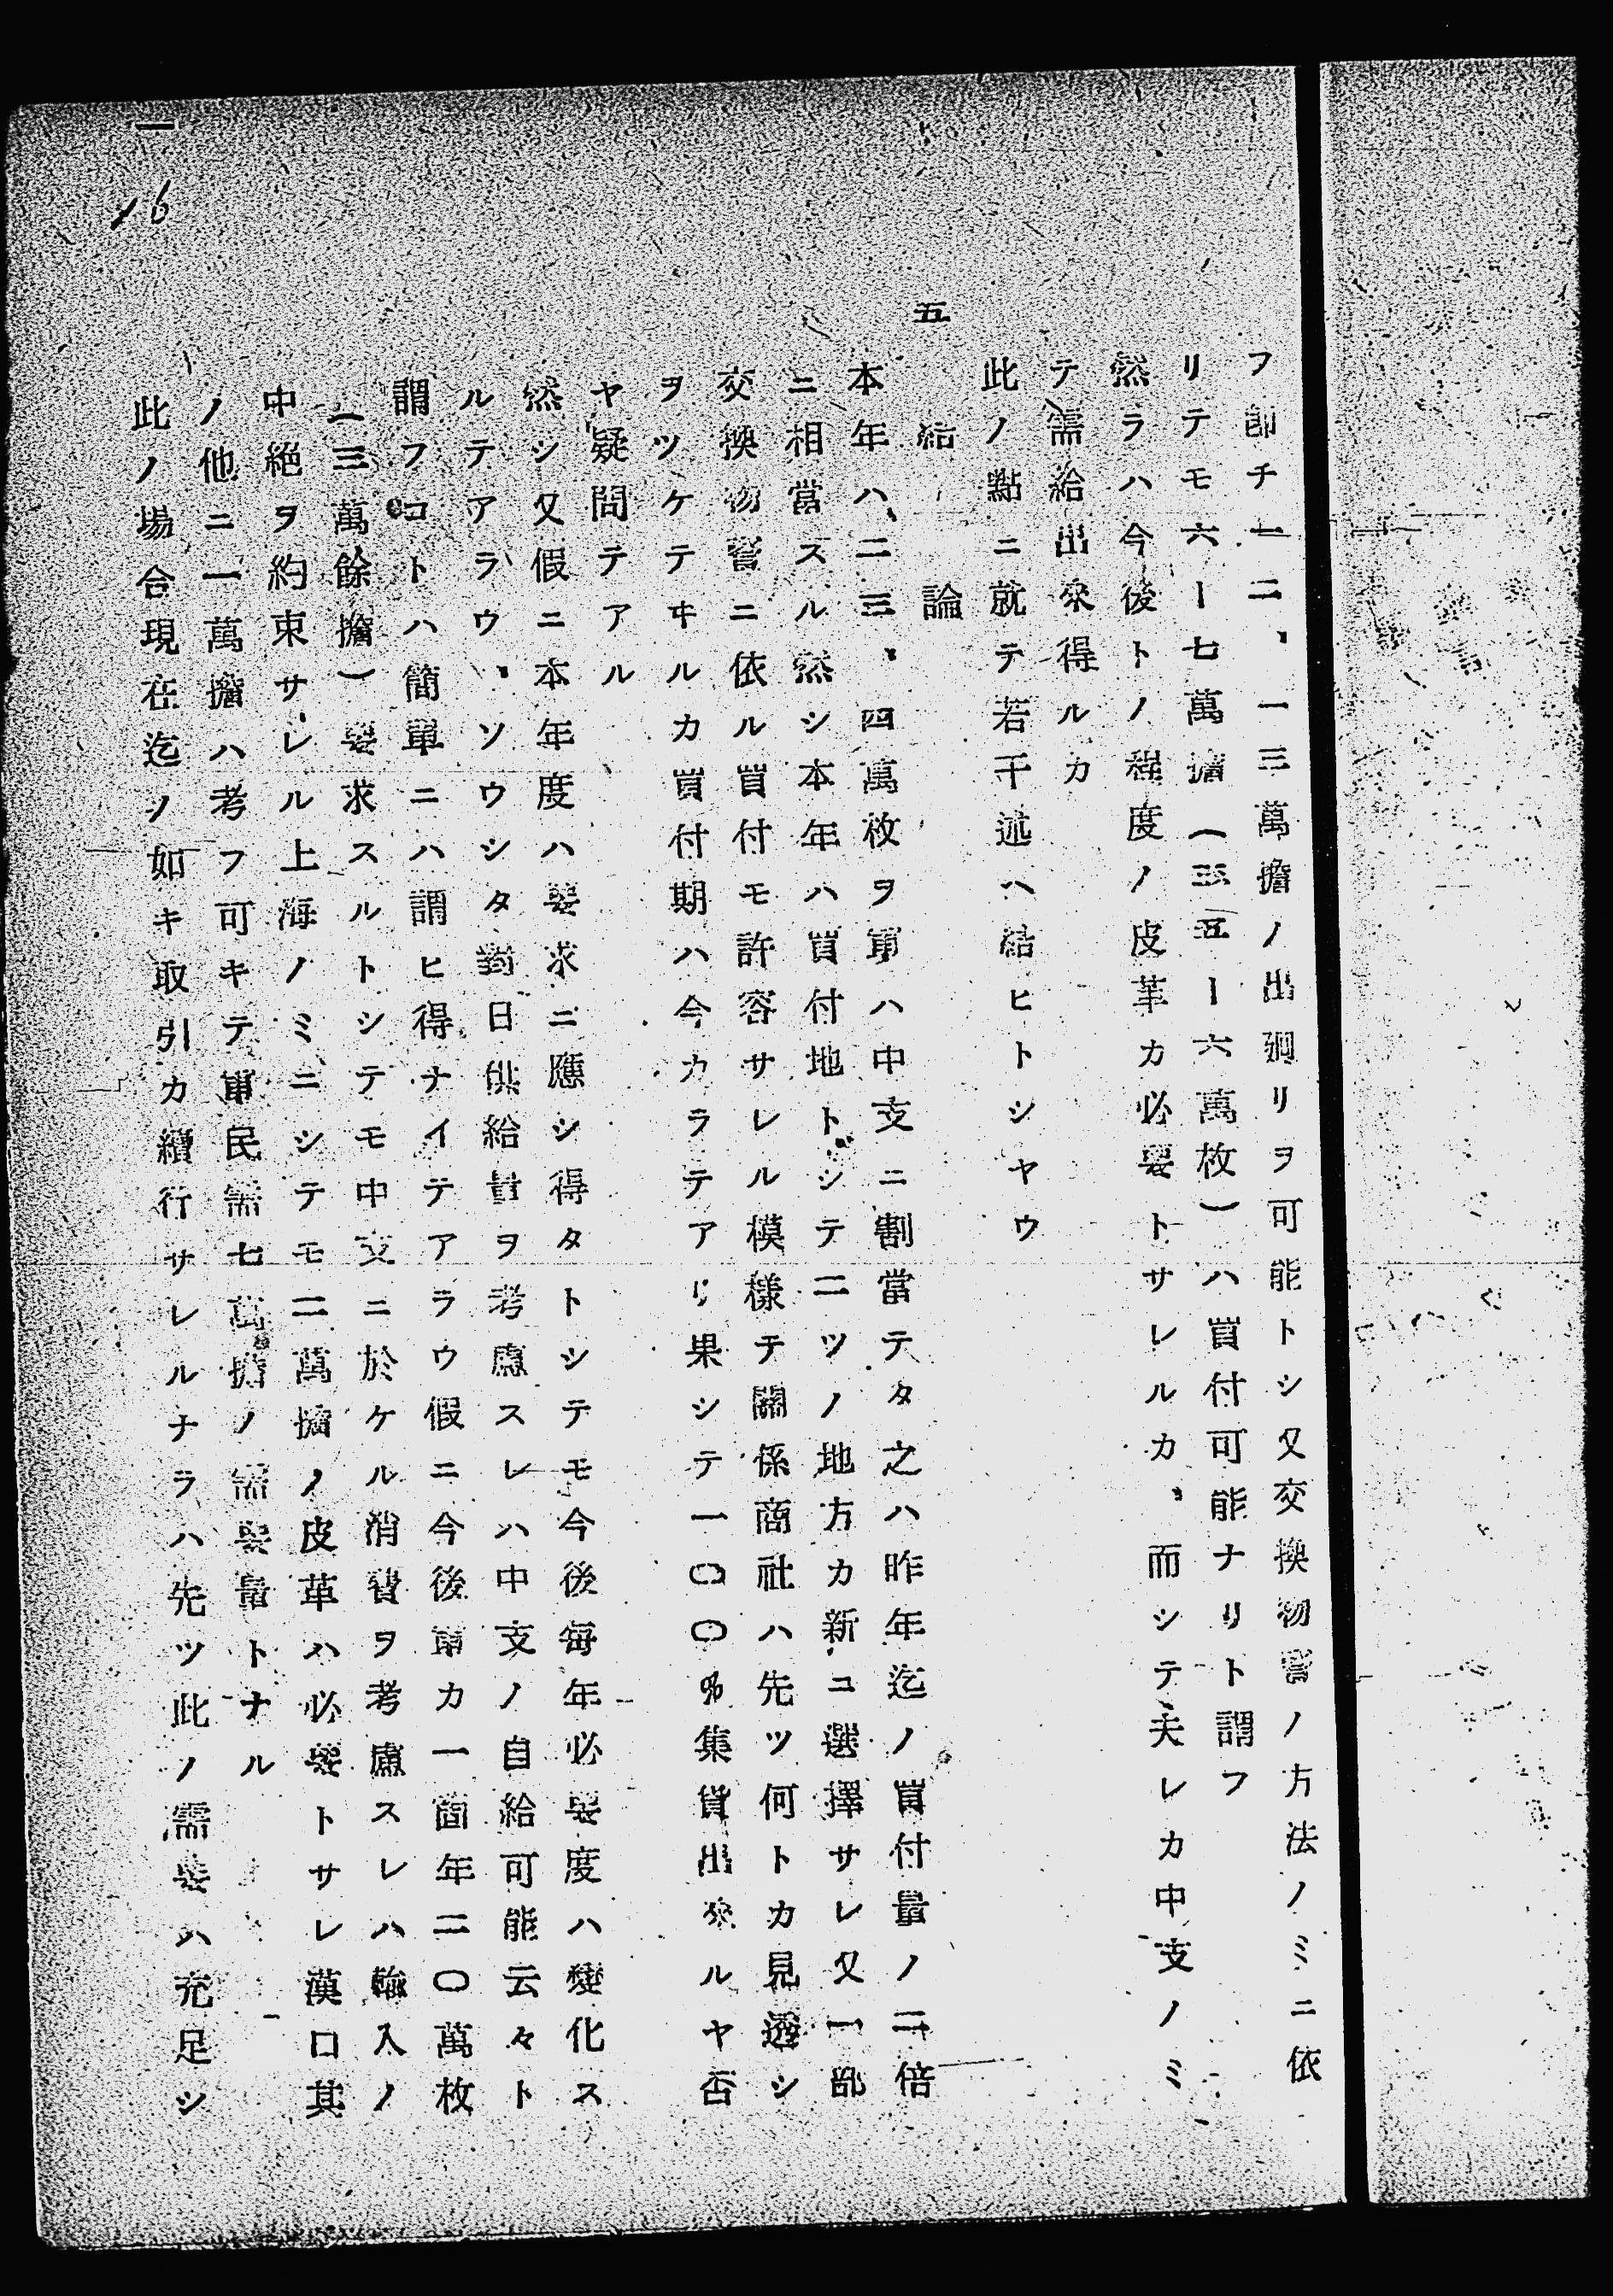 フ卽チ一二、一三萬擔ノ出廻リヲ可能トシ又交換物資ノ方法ノミニ依
リテモ六ー七萬擔(三五ー六萬枚)ハ買付可能ナリト謂フ
然ラハ今後トノ程度ノ皮革カ必要トサレルカ、而シテ夫レカ中支ノミ
テ需給出來得ルカ
此ノ點ニ就テ若干述ヘ結ヒトシヤウ
五 結論
本年ハ、二三、四萬枚ヲ軍ハ中支ニ割當テタ之ハ昨年迄ノ買付量ノ二倍
ニ相當スル然シ本年ハ買付地トシテ二ツノ地方カ新ニ選擇サレ又一部
交換物資ニ依ル買付モ許容サレル模樣テ關係商社ハ先ツ何トカ見透シ
ヲツケテヰルカ買付期ハ今カラテアリ果シテ一〇〇%集貨出來ルヤ否
ヤ疑問テアル
然シ又假ニ本年度ハ要求ニ應シ得タトシテモ今後每年必要度ハ變化ス
ルテアラウ、ソウシタ對日供給量ヲ考慮スレハ中支ノ自給可能云々ト
謂フコトハ簡單ニハ謂ヒ得ナイテアラウ假ニ今後軍カ一箇年二〇萬枚
(三萬餘擔)要求スルトシテモ中支ニ於ケル消費ヲ考慮スレハ輸入ノ
中絕ヲ約束サレル上海ノミニシテモ二萬擔ノ皮革ハ必要トサレ漢口其
ノ他ニ一萬擔ハ考フ可キテ軍民需七萬擔ノ需要量トナル
此ノ場合現在迄ノ如キ取引カ續行サレルナラハ先ツ此ノ需要ハ充足シ
一
16